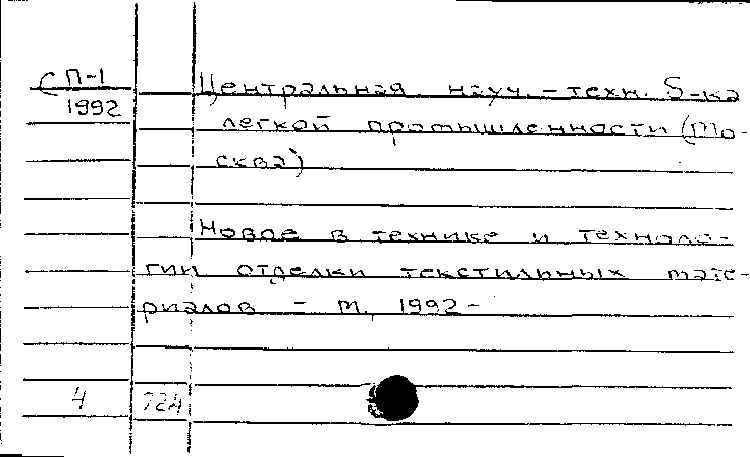 СП-1 Центральная науч.-техн. б-ка
1992 легкой промышленности (Мо-
сква)
Новое в технике и техноло-
гии отделки текстильных мате-
риалов - М., 1992 -
4 724